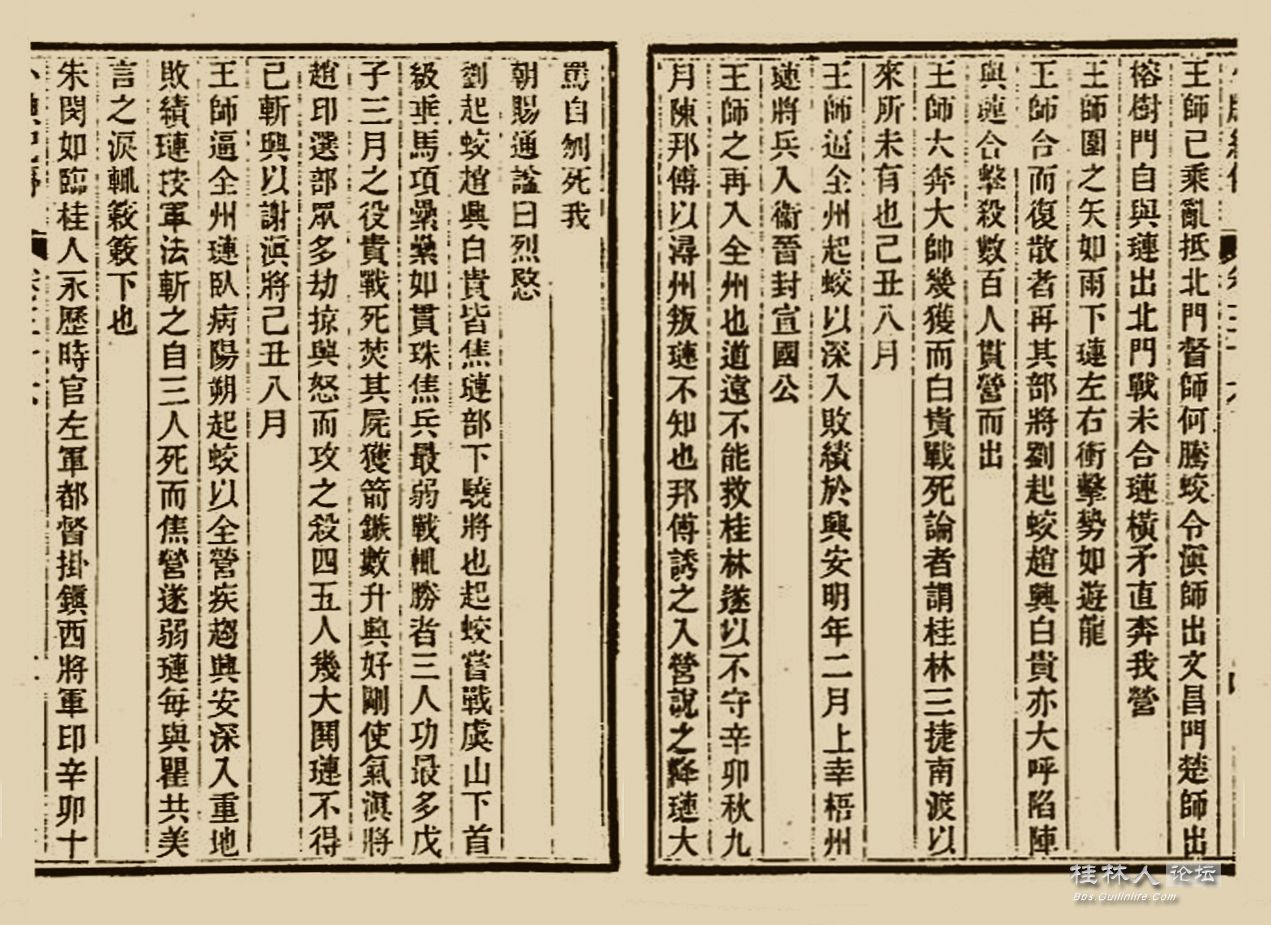 王師已乘亂抵北門督師何騰蛟令滇師出文昌門楚師出
榕樹門自與璉出北門戰未合璉橫矛直奔我營
王師圍之矢如雨下璉左右衝擊勢如遊龍
王師合而復散者再其部將劉起蛟趙興白貴亦大呼陷陣
與璉合擊殺數百人貫營而出
王師大奔大帥幾獲而白貴戰死論者謂桂林三捷南渡以
來所未有也己丑八月
王師逼全州起蛟以深入敗績於興安明年二月上幸梧州
璉將兵入衞晉封宣國公
王師之再入全州也道遠不能救桂林遂以不守辛卯秋九
月陳邦傅以潯州叛璉不知也邦傅誘之入營說之降璉大
罵自刎死我
朝賜通諡曰烈愍
劉起蛟趙興白貴皆焦璉部下驍將也起蛟嘗戰虞山下首
級垂馬項纍纍如貫珠焦兵最弱戰輒勝者三人功最多戊
子三月之役貴戰死焚其屍獲箭鏃數升興好剛使氣滇將
趙印選部眾多劫掠興怒而攻之殺四五人幾大鬨璉不得
已斬興以謝滇將己丑八月
王師逼全州璉臥病陽朔起蛟以全營疾趨興安深入重地
敗績璉按軍法斬之自三人死而焦營遂弱璉每與瞿共美
言之淚輒簌簌下也
朱閔如臨桂人永歷時官左軍都督掛鎭西將軍印辛卯十
桂林人论坛
Bbs.Guilinlife.Com